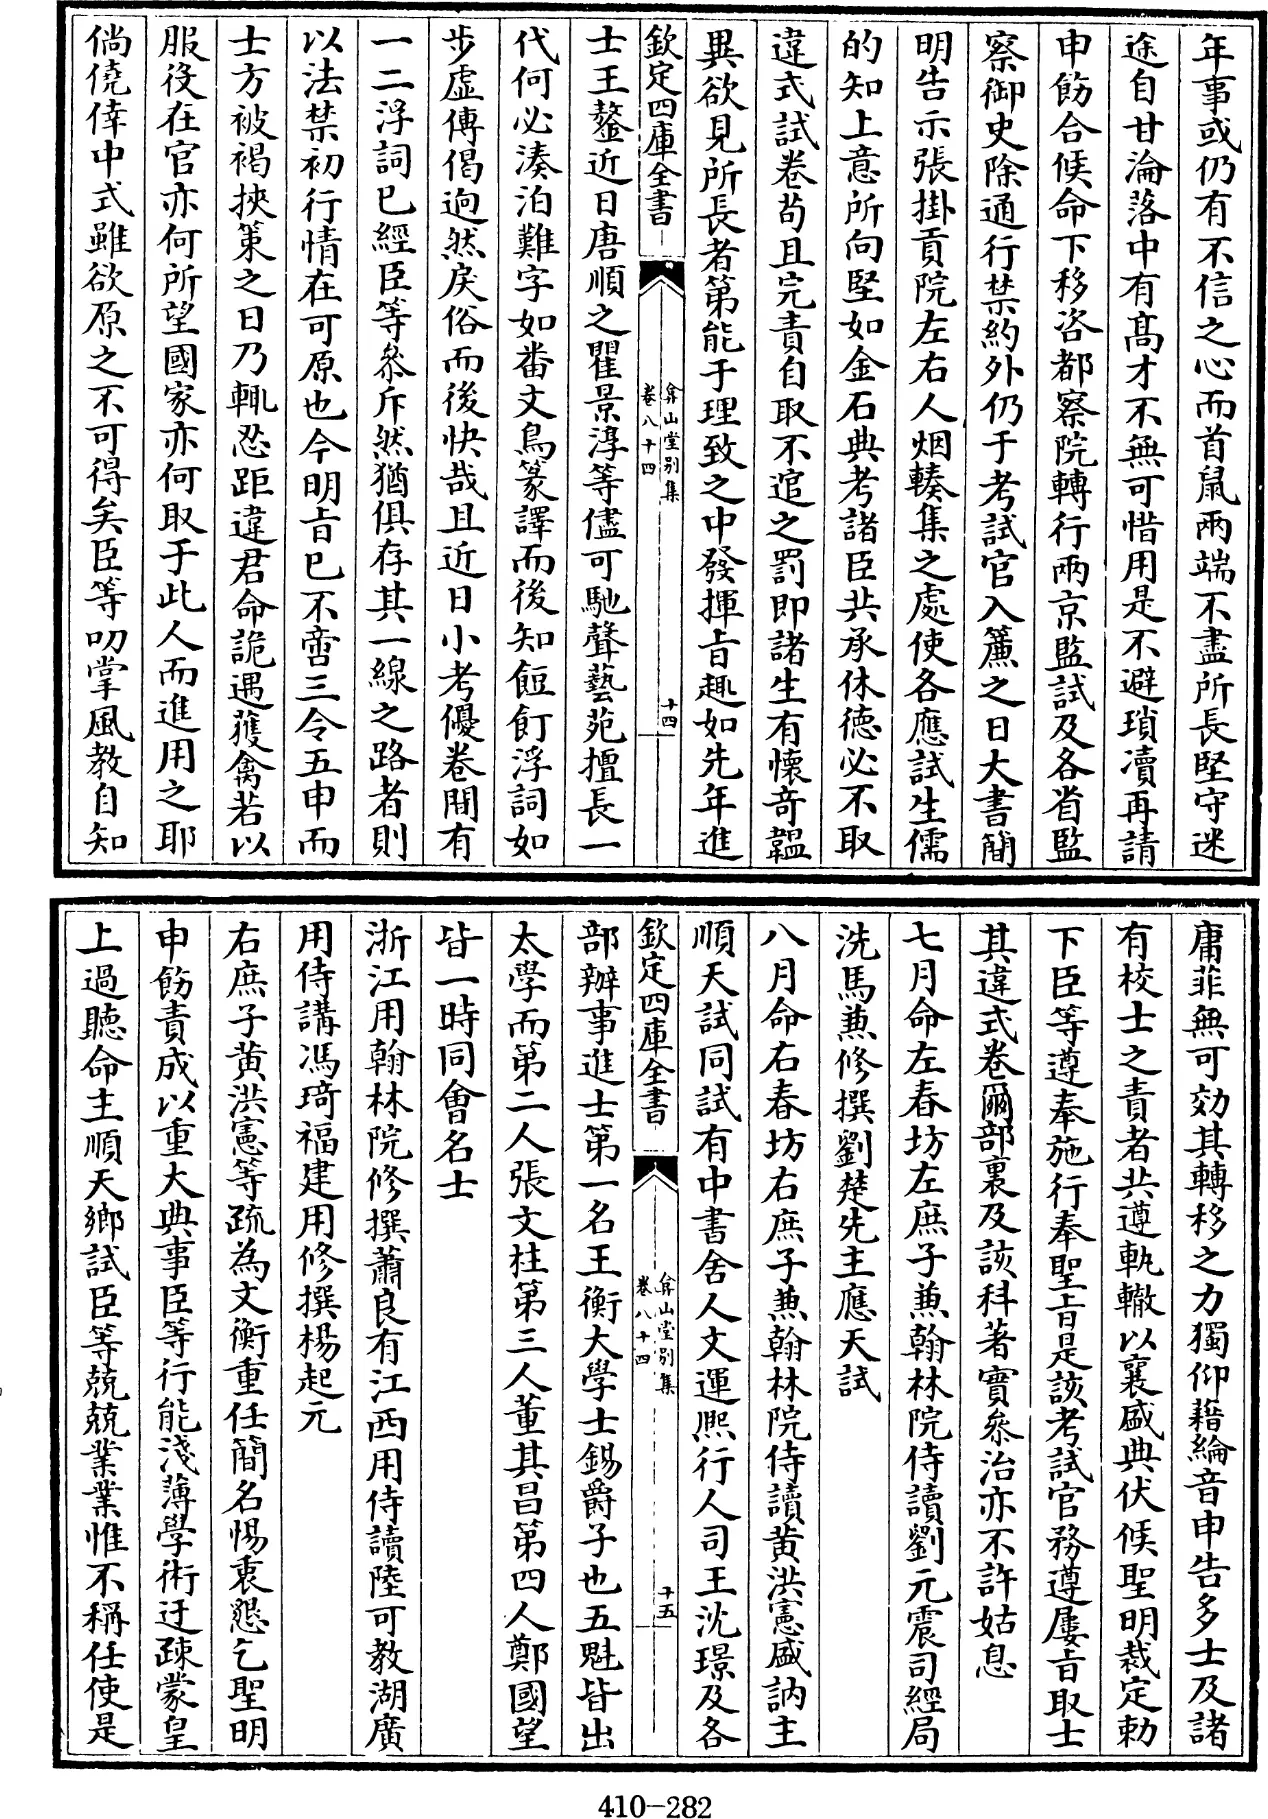 年事或仍有不信之心而首鼠兩端不盡所長堅守迷
途自甘淪落中有髙才不無可惜用是不避瑣瀆再請
申飭合候命下移咨都察院轉行兩京監試及各省監
察御史除通行禁約外仍于考試官入簾之日大書簡
明告示張掛貢院左右人烟輳集之處使各應試生儒
的知上意所向堅如金石典考諸臣共承休徳必不取
違式試卷苟且完責自取不逭之罰即諸生有懷竒韞
異欲見所長者第能于理致之中發揮㫖趣如先年進
欽定四庫全書
弇山堂别集
卷八十四
十四
士王鏊近日唐順之瞿景淳等儘可馳聲藝苑擅長一
代何必湊泊難字如番文鳥篆譯而後知飣飣浮詞如
步虛傳偈逈然戾俗而後快哉且近日小考優卷間有
一二浮詞已經臣等叅斥然猶俱存其一線之路者則
以法禁初行情在可原也今明㫖已不啻三令五申而
士方被褐挾策之日乃輒忍距違君命詭遇獲禽若以
服役在官亦何所望國家亦何取于此人而進用之耶
倘僥倖中式雖欲原之不可得矣臣等叨掌風教自知
庸菲無可効其轉移之力獨仰藉綸音申告多士及諸
有校士之責者共遵軌轍以襄盛典伏候聖明裁定勅
下臣等遵奉施行奉聖㫖是該考試官務遵屢㫖取士
其違式卷爾部裏及該科著實叅治亦不許姑息
七月命左春坊左庶子兼翰林院侍讀劉元震司經局
洗馬兼修撰劉楚先主應天試
八月命右春坊右庶子兼翰林院侍讀黄洪憲盛訥主
順天試同試有中書舍人文運熙行人司王沈璟及各
欽定四庫全書
弇山堂别集
卷八十四
十五
部辦事進士第一名王衡大學士錫爵子也五魁皆出
太學而第二人張文柱第三人董其昌第四人鄭國望
皆一時同會名士
浙江用翰林院修撰蕭良有江西用侍讀陸可教湖廣
用侍講馮琦福建用修撰楊起元
右庶子黄洪憲等疏為文衡重任簡名惕衷懇乞聖明
申飭責成以重大典事臣等行能淺薄學術迂疎蒙皇
上過聽命主順天鄉試臣等兢兢業業惟不稱任使是
410-282